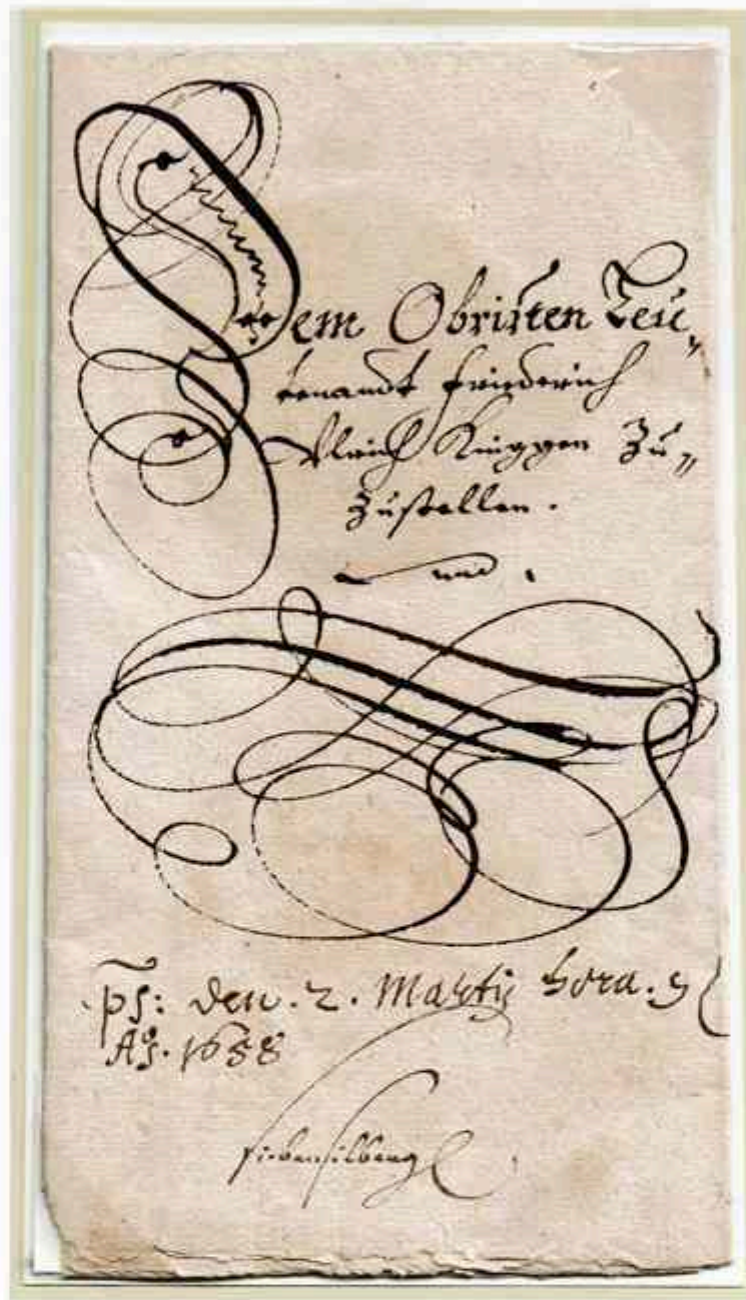 Dem Obristen Leu„
tenandt Friederich
Ulrich Kniggen Zu„
Zustellen.
ps: den . 2. Martij hora . 9
Aō. 1688